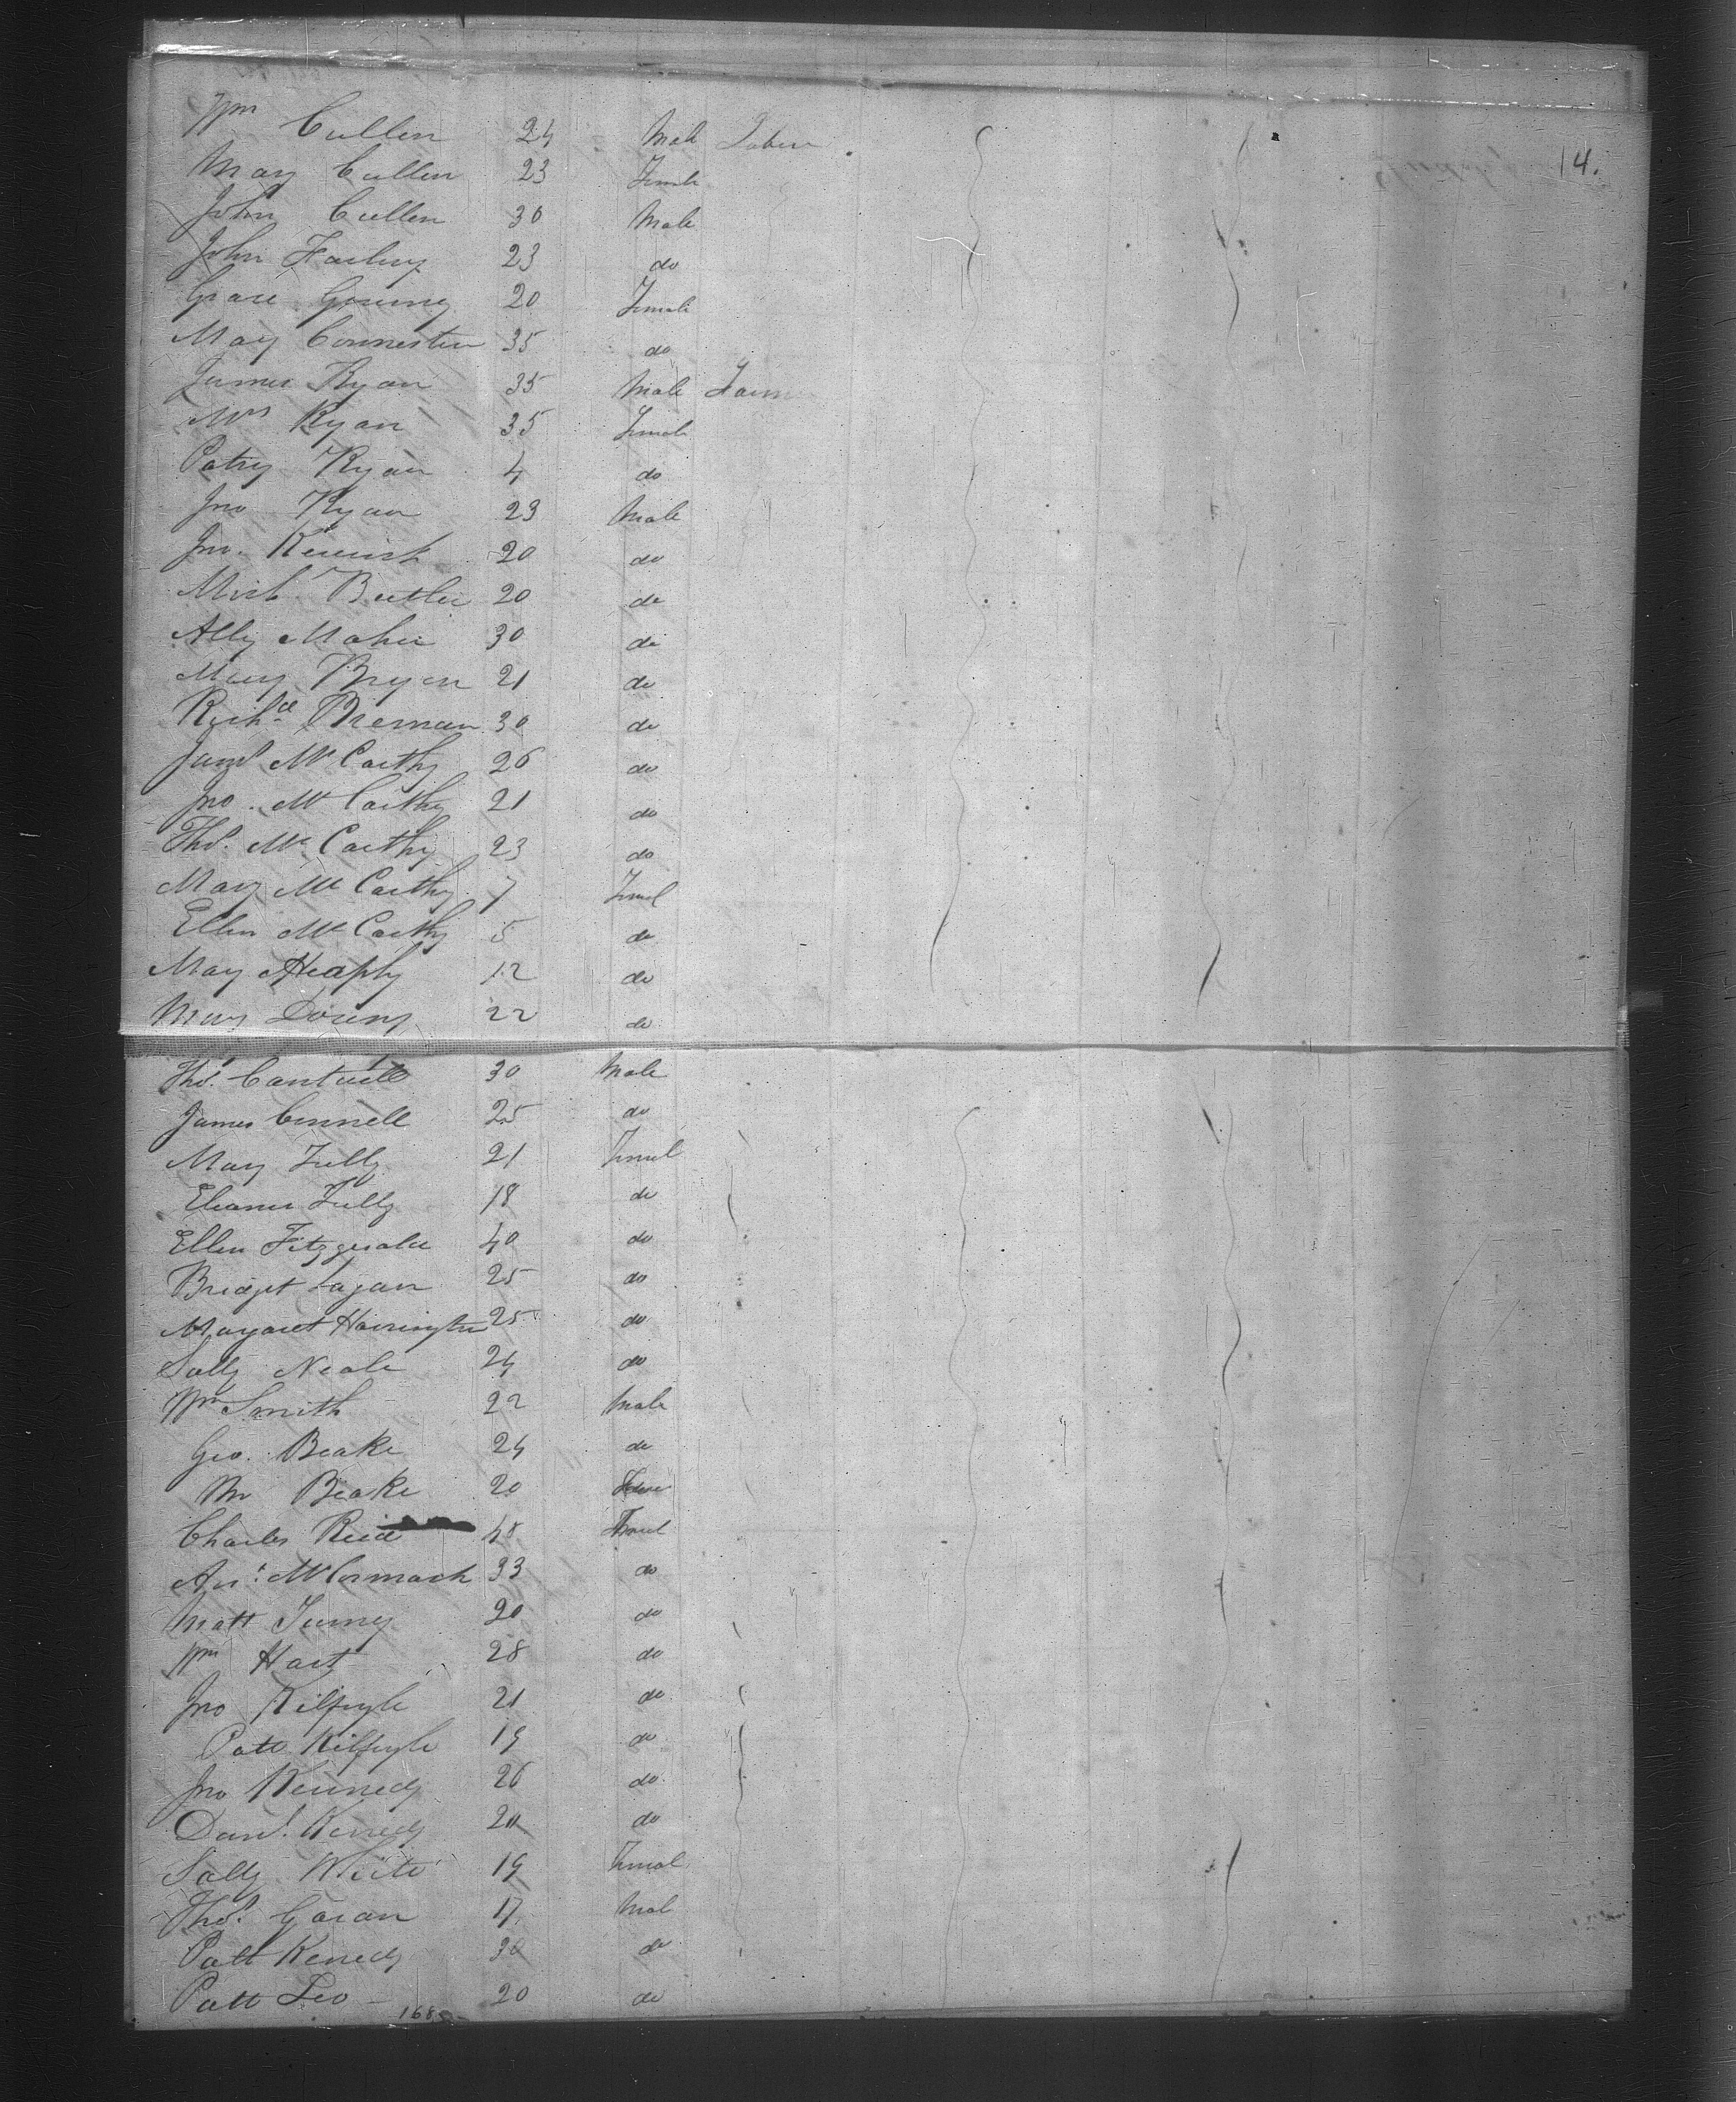 14.
Wm Cullen 24 Male Labou
Mary Cullen 23 Female
John Cullen 30 Male
John 23 do
Grace 20 Female
Mary 35 do
James Ryan 35 Male Farm
Mrs Ryan 35 Female
Patsy Ryan 4 do
Jno Ryan 23 Male
Jno. 20 do
Mich Butler 20 do
Ally Maher 30 do
Mary Bryan 21 do
Richd Brennan 30 do
Jams McCarthy 26 do
Jno. McCarthy 21 do
Thos. McCarthy 23 do
Mary McCarthy 7 Femal
Ellen McCarthy 5 do
Mary Heaphy 12 do
Mary 22 do
Thos. Cantwell 30 Male
James Connell 25 do
Mary Tully 21 Femal
Eleanor Tully 18 do
Ellen Fitzgerald 40 do
Bridget Fagan 25 do
Margaret Harrington 25 do
Sally Neale 24 do
Wm Smith 22 Male
Geo. Beake 24 do
Beake 20
Charles Reid 45
McCormack 33 do
Matt 20 do
Wm Hart 28 do
Jno Kilfoyle 21 do
Patt Kilfoyle 19 do
Jno Kennedy 26 do
Danl. Kenedy 20 do
Sally White 19 Femal
Thos. Goran 17 Mal
Patt Kenedy 30 do
Patt Leo 20 do